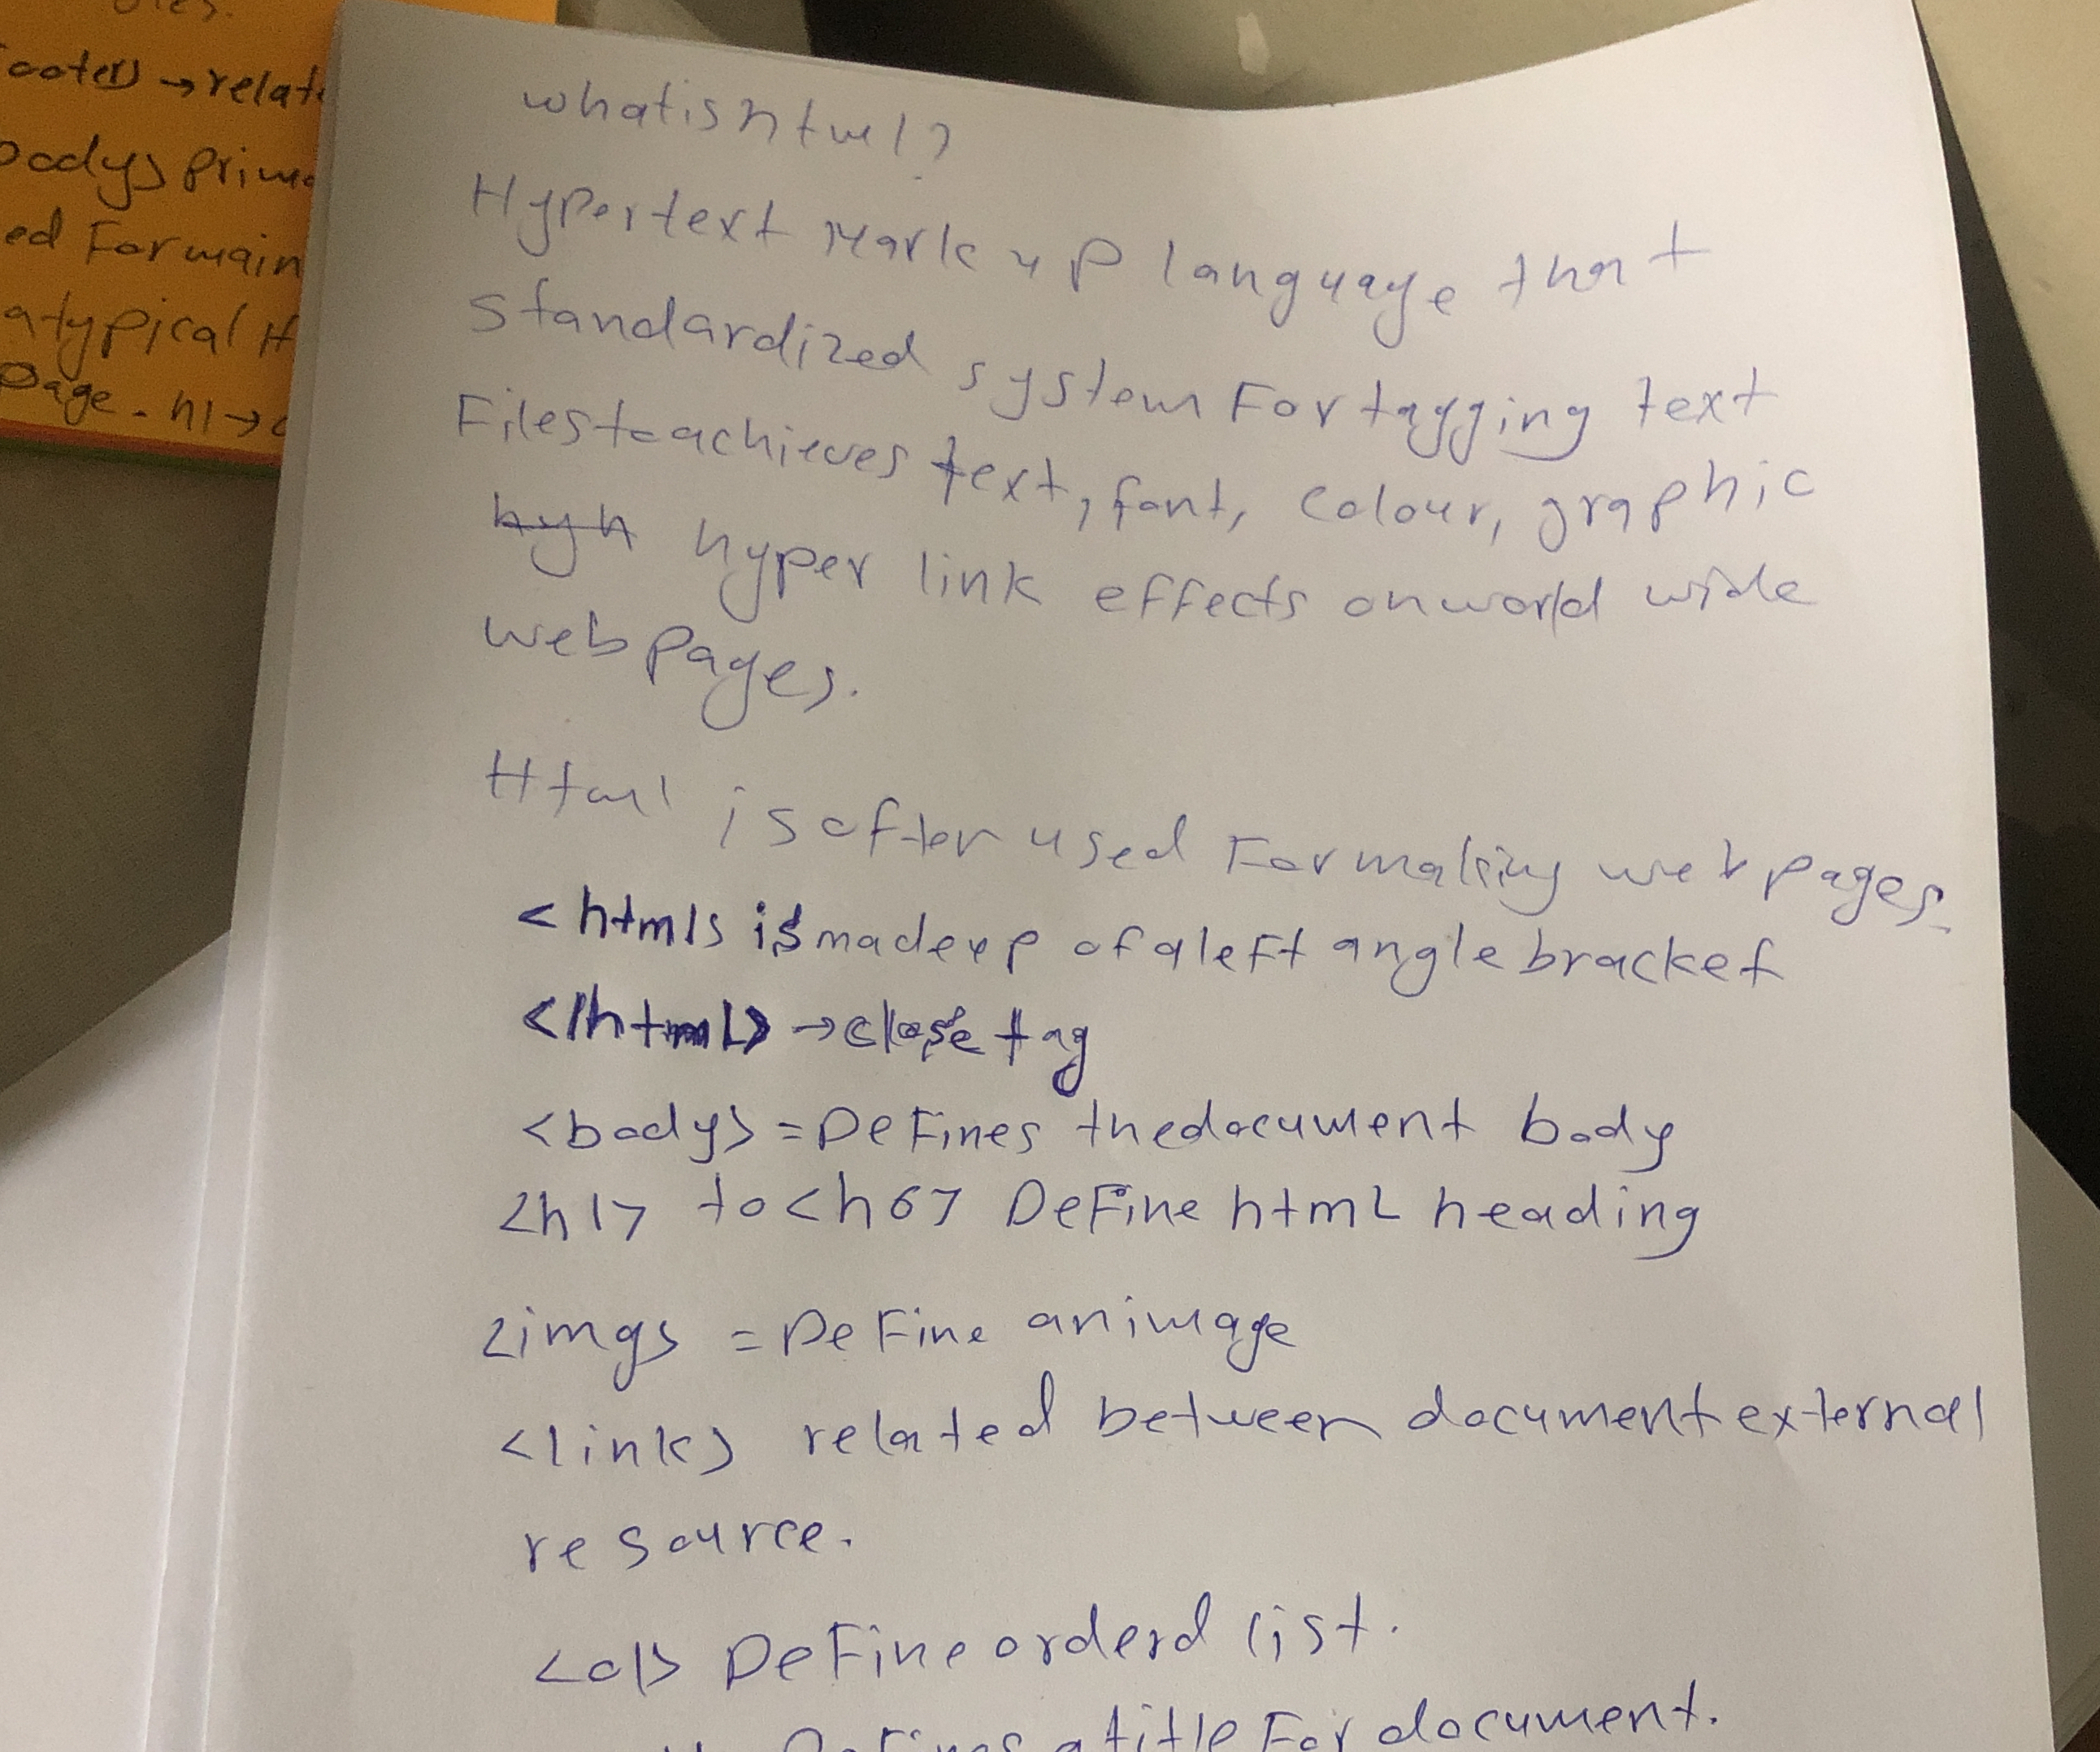 ooter> → relat
body> prima
ed For main
a typical H
page - h1 →
what is html?
Hypertext Mark up language that
standardized system For tagging text
Files to achieves text, font, colour, graphic
hyh hyper link effects on world wide
web pages.
Html is ofter used For making web pages.
<html> is made up of a left angle bracket
</html> → close tag
<body> = DeFines the document body
<h1> to <h6> DeFine htmL heading
<img> = DeFine an image
<link> related between document external
resource.
<ol> DeFine orderd list.
DeFines a title For document.